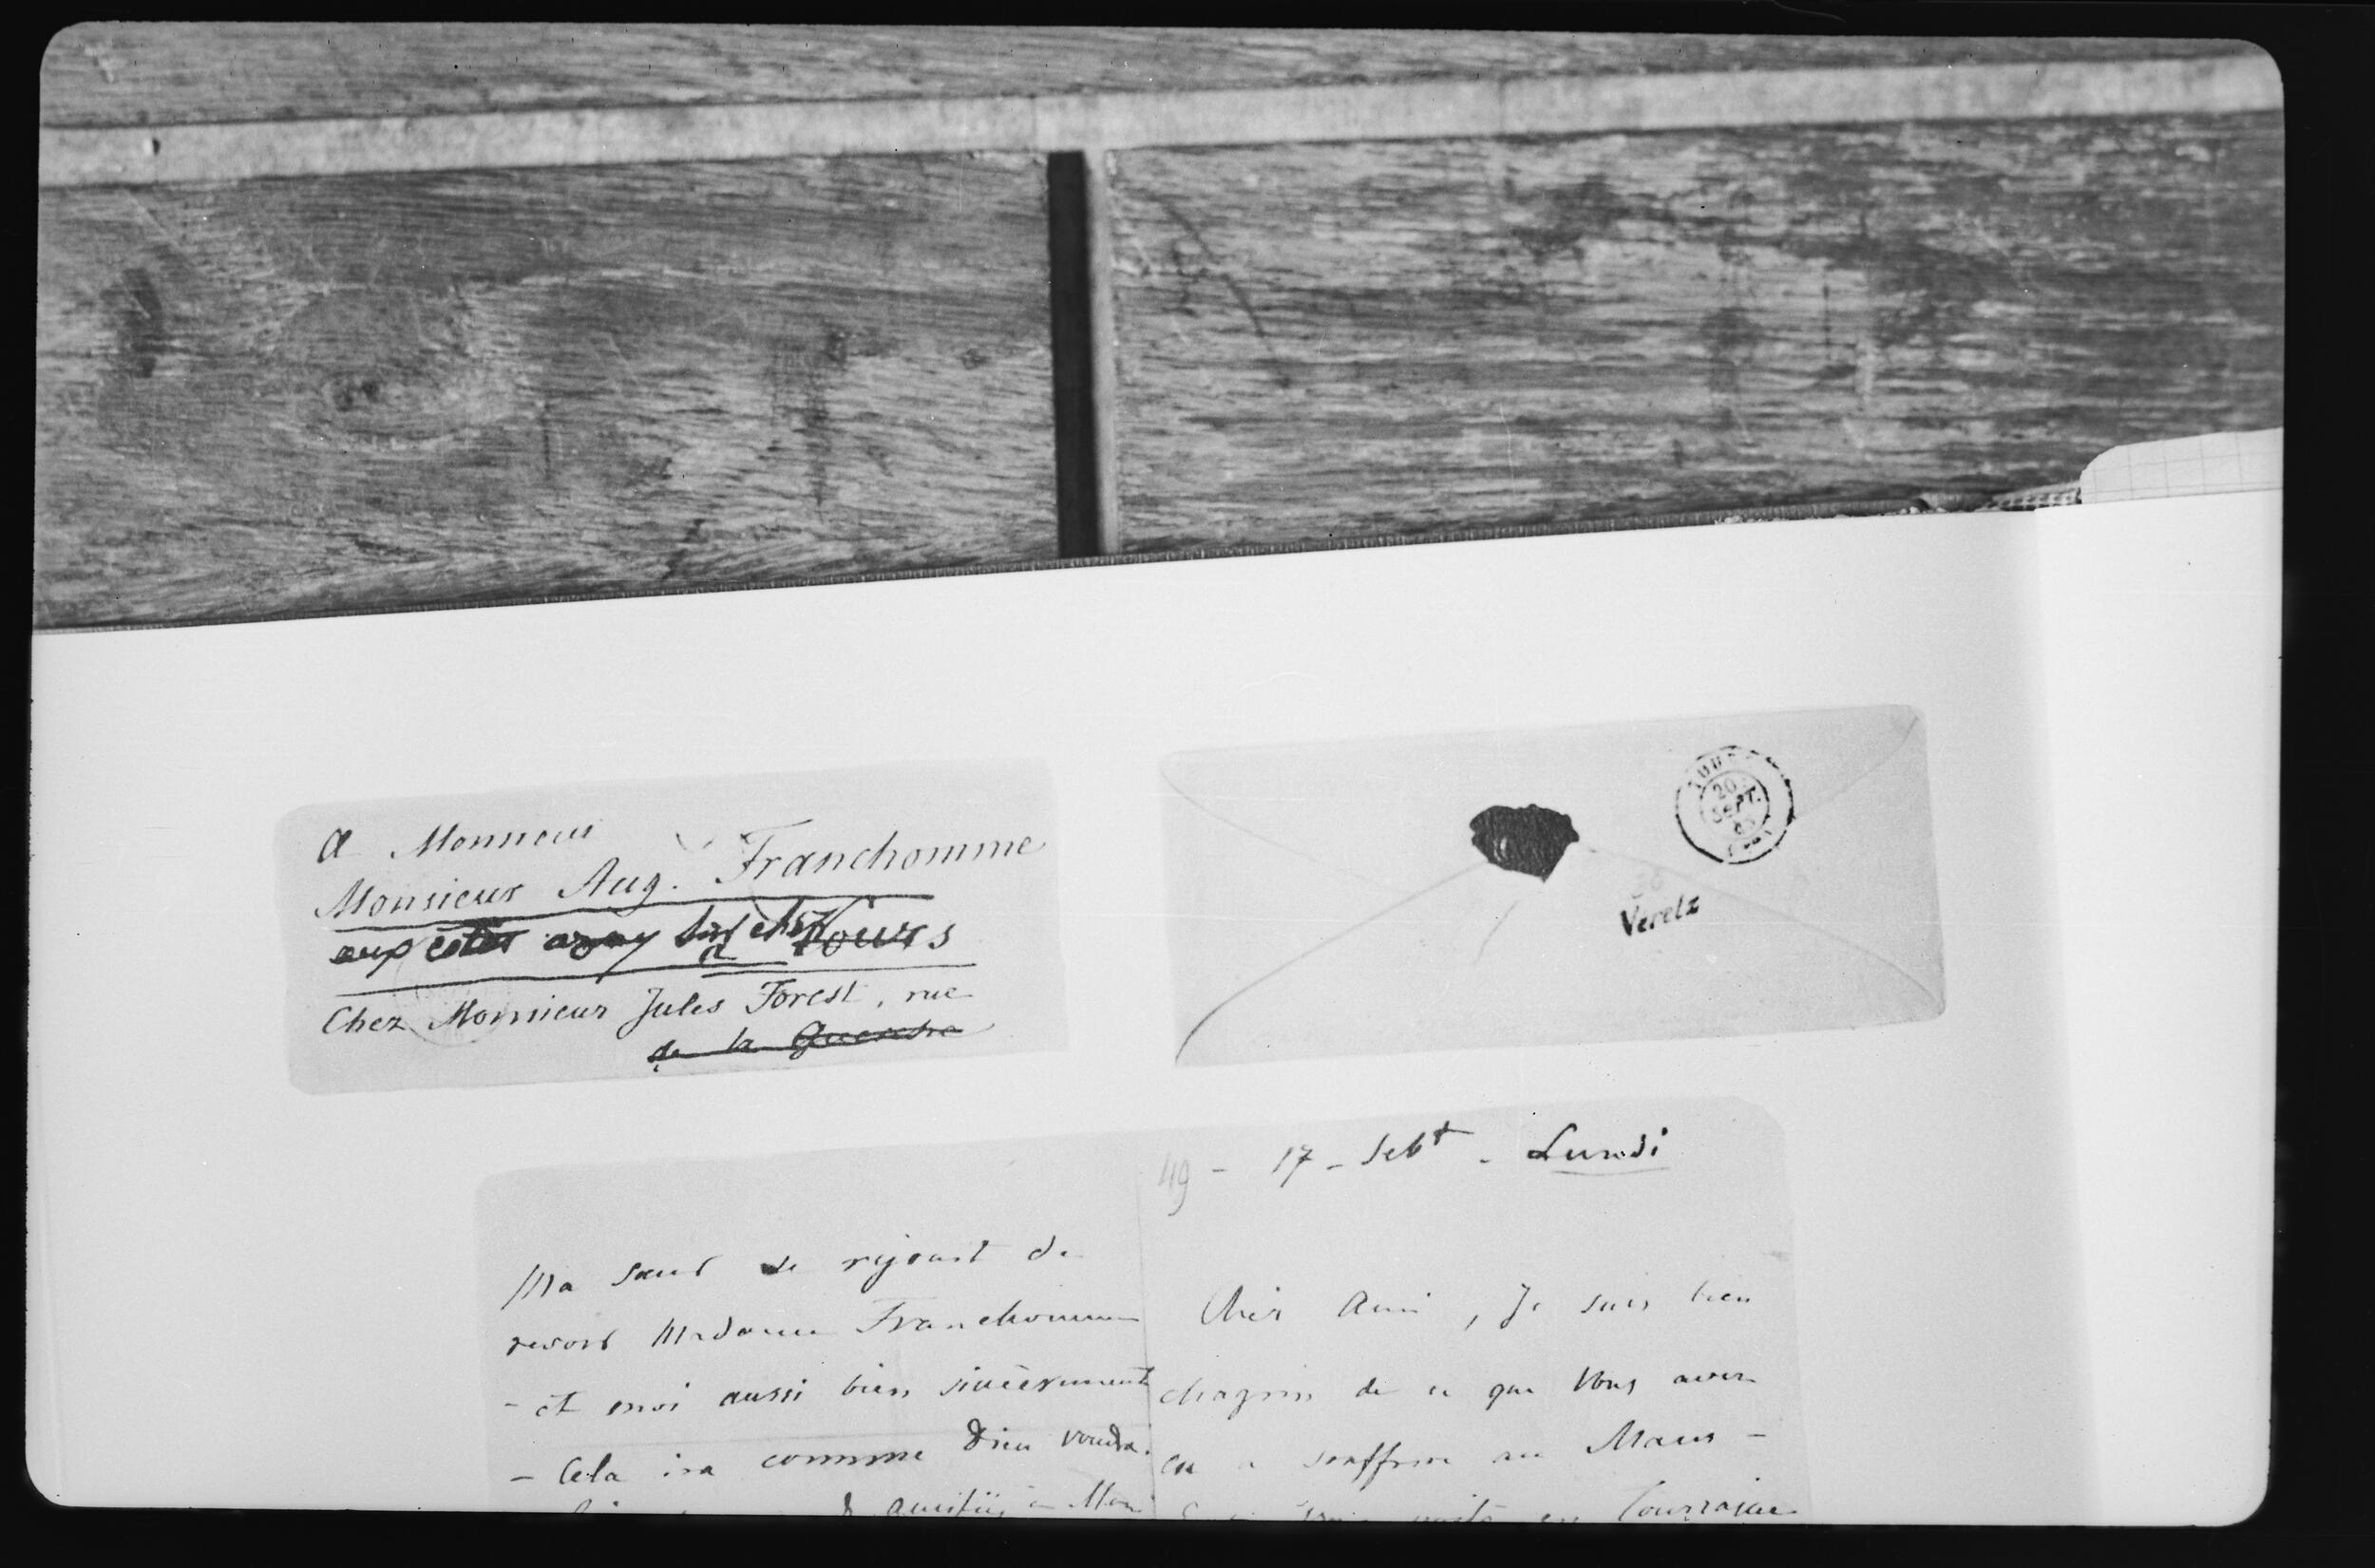 A Monsieur
Monsieur Aug. Franchomme
aux côtes azay sur cher
à Tours
Chez Monsieur Jules Forest, rue
de la Guerche
20
SEPT.
Veretz
49 - 17 - Sebt - Lundi
Ma sœur se rejouit de
revoir Madame Franchomme
- et moi aussi bien sincèrement
- Cela ira comme Dieu voudra.
amitiés à
Cher Ami, Je suis bien
chagrin de ce que Vous avez
eu a souffrir au Mans -
en Tourraine